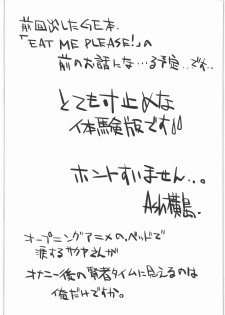 前回出したGE本.
「EAT ME PLEASE!」の
前のお話にな…る予定..です..
とても寸止めな
体験版です!!
ホントすいません...。
Ash横島.
オープニングアニメの、ベッドで
涙するサクヤさんが
オナニー後の賢者タイムに見えるのは
俺だけですか。